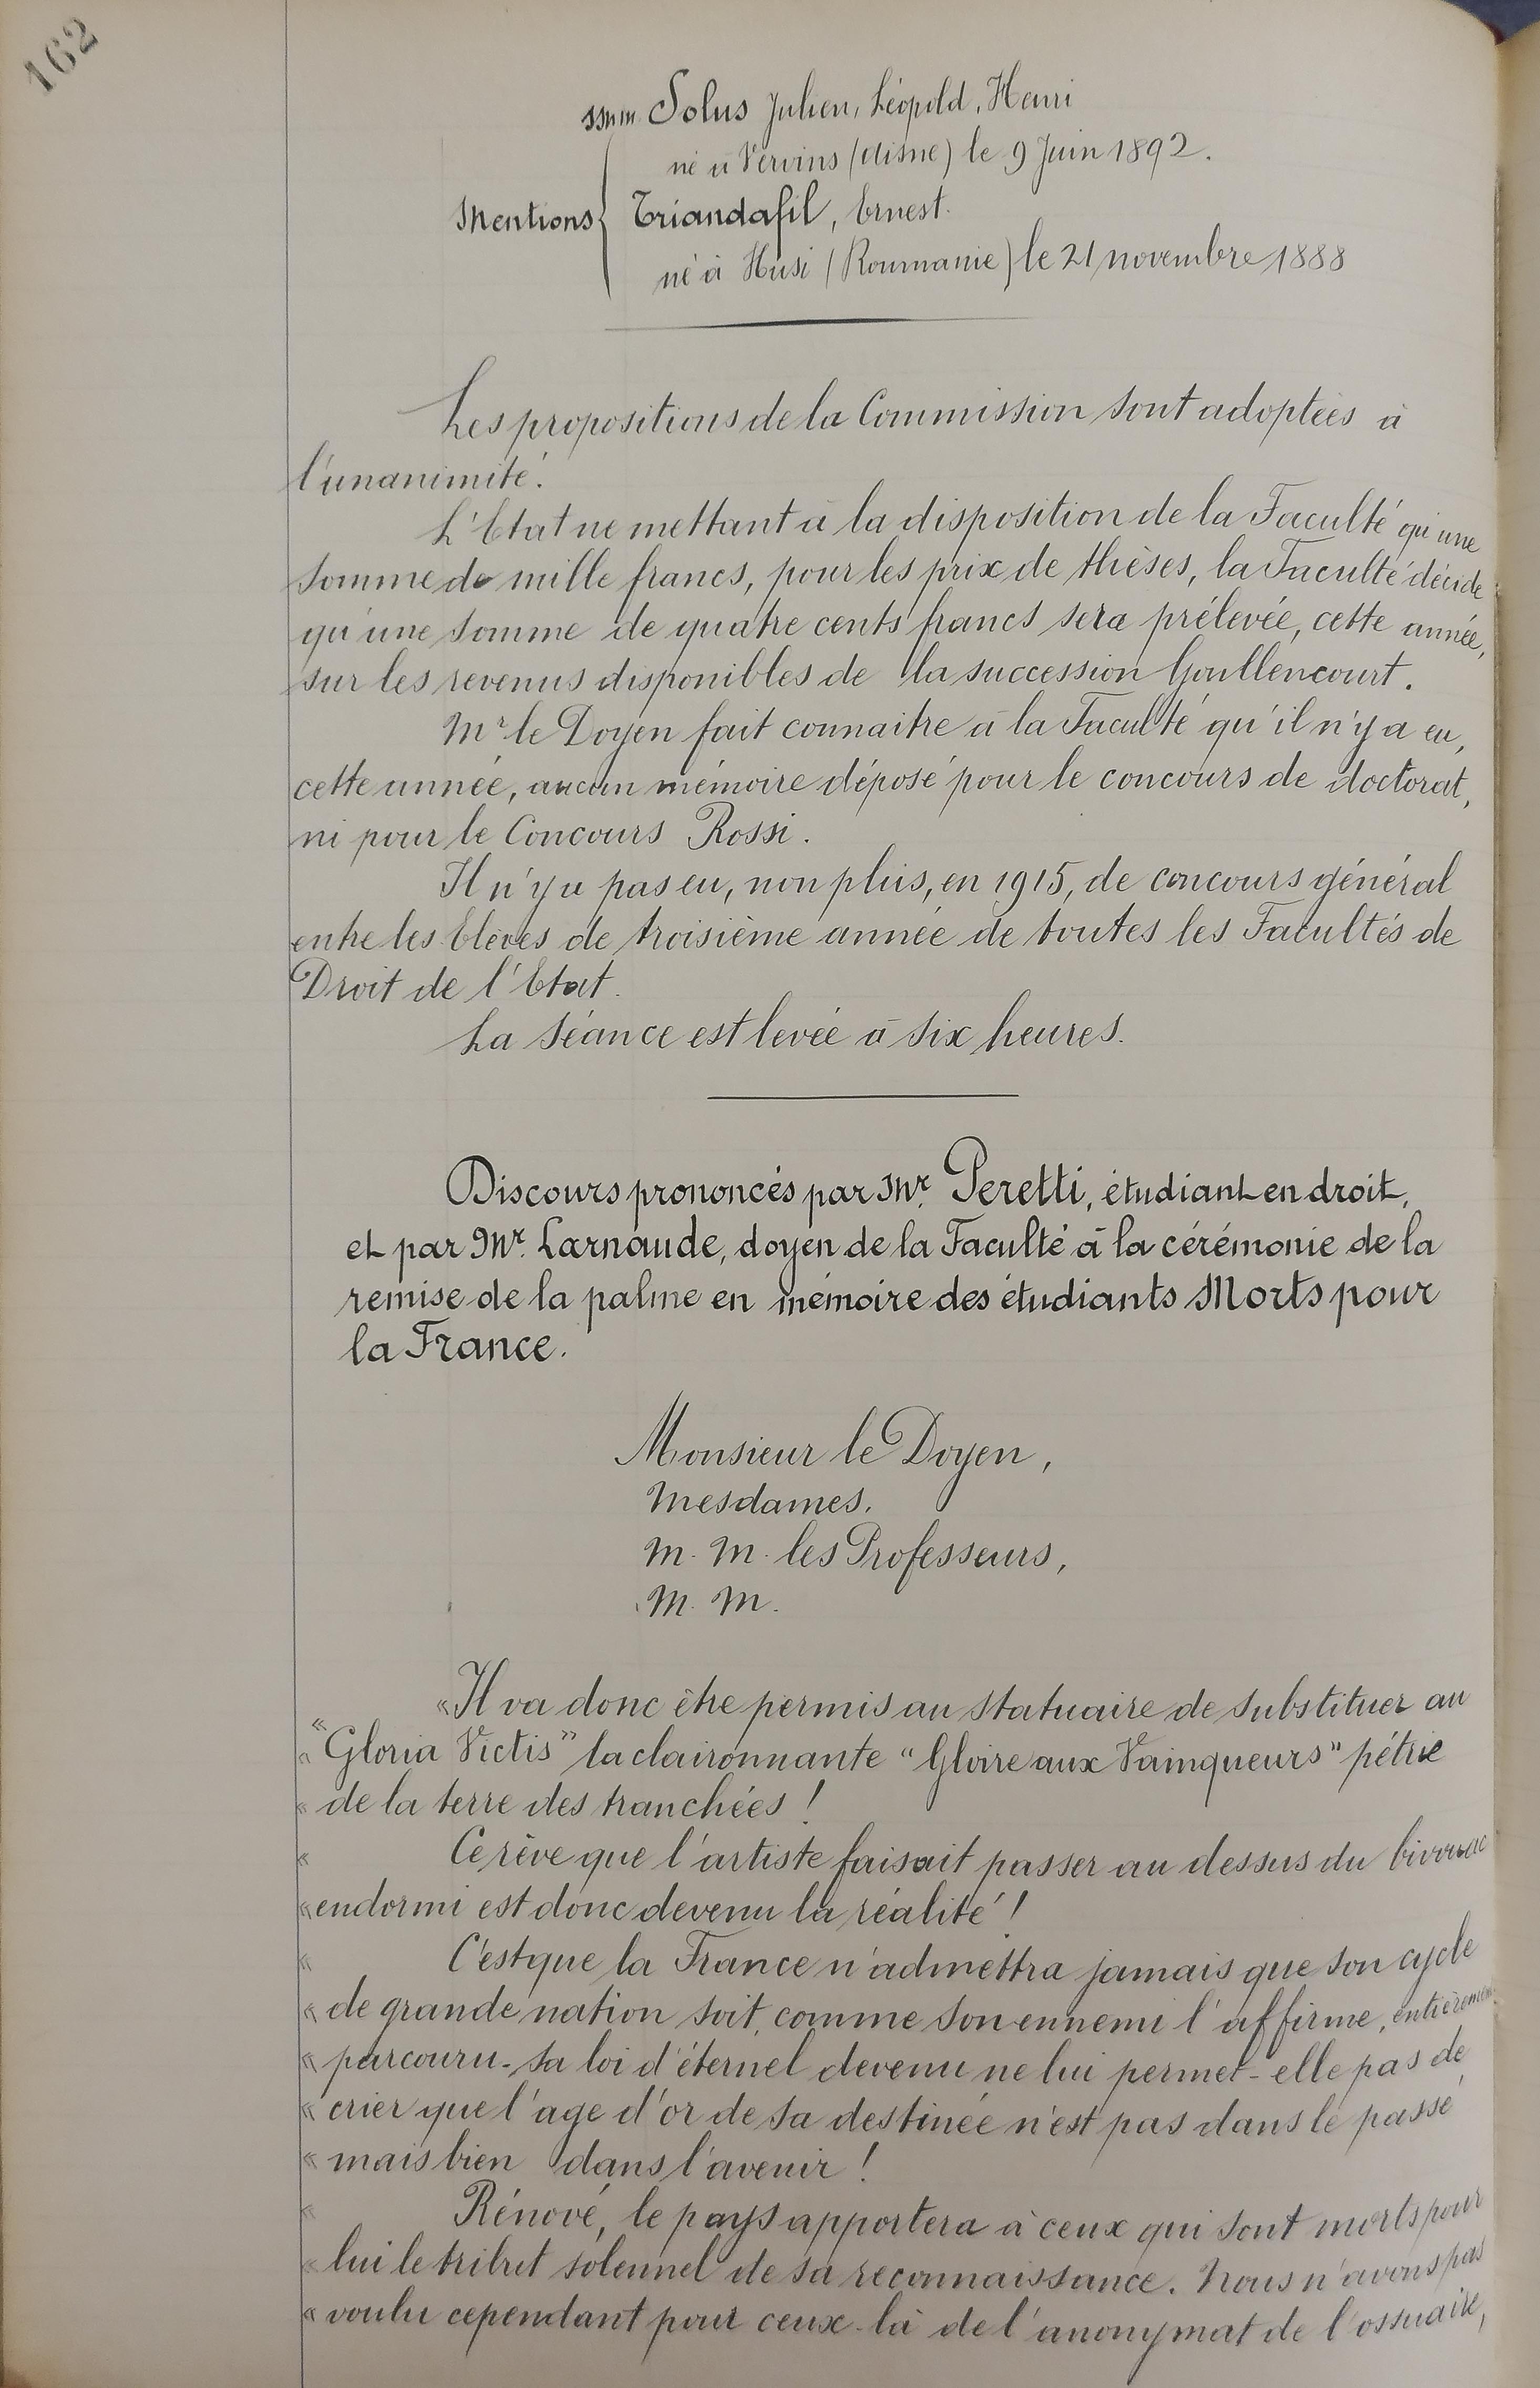 162
MM Solus Julien, Léopold, Henri
né à Vervins (Aisne) le 9 Juin 1892.
Mentions { Triandafil, Ernest.
né à Husi (Roumanie) le 21 novembre 1888
Les propositions de la Commission sont adoptées à
l'unanimité.
L'Etat ne mettant à la disposition de la Faculté qu'une
somme de mille francs, pour les prix de thèses, la Faculté décide
qu'une somme de quatre cents francs sera prélevée, cette année,
sur les revenus disponibles de la succession Goullencourt.
Mr le Doyen fait connaitre à la Faculté qu'il n'y a eu,
cette année, aucun mémoire déposé pour le concours de doctorat,
ni pour le Concours Rossi.
Il n'y a pas eu, non plus, en 1915, de concours général
entre les Elèves de troisième année de toutes les Facultés de
Droit de l'Etat.
La Séance est levée à six heures.
Discours prononcés par Mr. Peretti, étudiant en droit,
et par Mr. Larnaude, doyen de la Faculté à la cérémonie de la
remise de la palme en mémoire des étudiants Morts pour
la France.
Monsieur le Doyen,
Mesdames.
M. M. les Professeurs,
M. M.
« Il va donc être permis au statuaire de substituer au
« "Gloria Victis" la claironnante "Gloire aux Vainqueurs" pétrie
« de la terre des tranchées !
« Ce rêve que l'artiste faisait passer au dessus du bivouac
« endormi est donc devenu la réalité !
« C'est que la France n'admettra jamais que son cycle
« de grande nation soit, comme son ennemi l'affirme, entièrement
« parcouru. Sa loi d'éternel devenu ne lui permet-elle pas de
« crier que l'age d'or de sa destinée n'est pas dans le passé
« mais bien dans l'avenir !
« Rénové, le pays apportera à ceux qui sont morts pour
« lui le tribut solennel de sa reconnaissance. Nous n'avons pas
« voulu cependant pour ceux-là de l'anonymat de l'ossuaire,